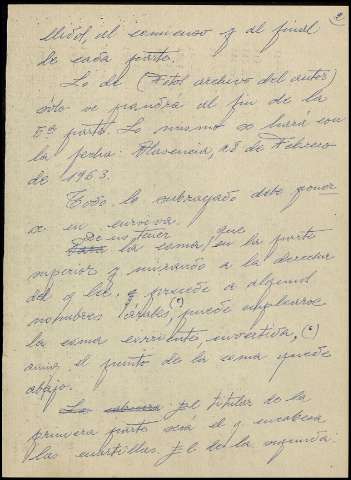 2
llidos, al comienzo y al final
de cada parte.
Lo de (Fotos archivo del autor)
sólo se pondrá al fin de la
5ª parte. Lo mismo se hará con
la fecha: Plasencia, 23 de Febrero
de 1963.
Todo lo subrayado debe poner
se en cursiva.
De no tener
la coma, que en la parte
superior y mirando a la derecha
del q lee, precede a algunos
nombres árabes, (‘) puede emplearse
la coma corriente, invertida, (‘)
aunq. el punto de la coma quede
abajo.
La abura El titular de la
primera parte será el q encabeza
las cuartillas. El de la segunda: